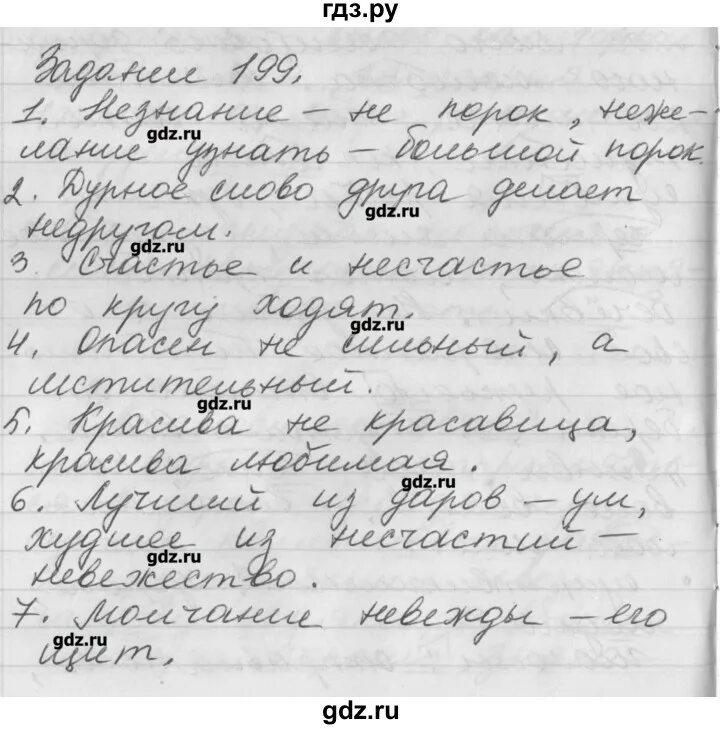 гдз.ру
Задание 199.
1. Незнание – не порок, неже-
gdz.ru
лание узнать – большой порок.
2. Дурное слово друга делает
gdz.ru
недругом.
gdz.ru
3. Счастье и несчастье
по кругу ходят.
gdz.ru
4. Опасен не сильный, а
мстительный.
gdz.ru
5. Красива не красавица,
красива любимая.
gdz.ru
6. Лучший из даров – ум,
худшее из несчастий –
gdz.ru
невежество.
7. Молчание невежды – его
gdz.ru
щит.
gdz.ru